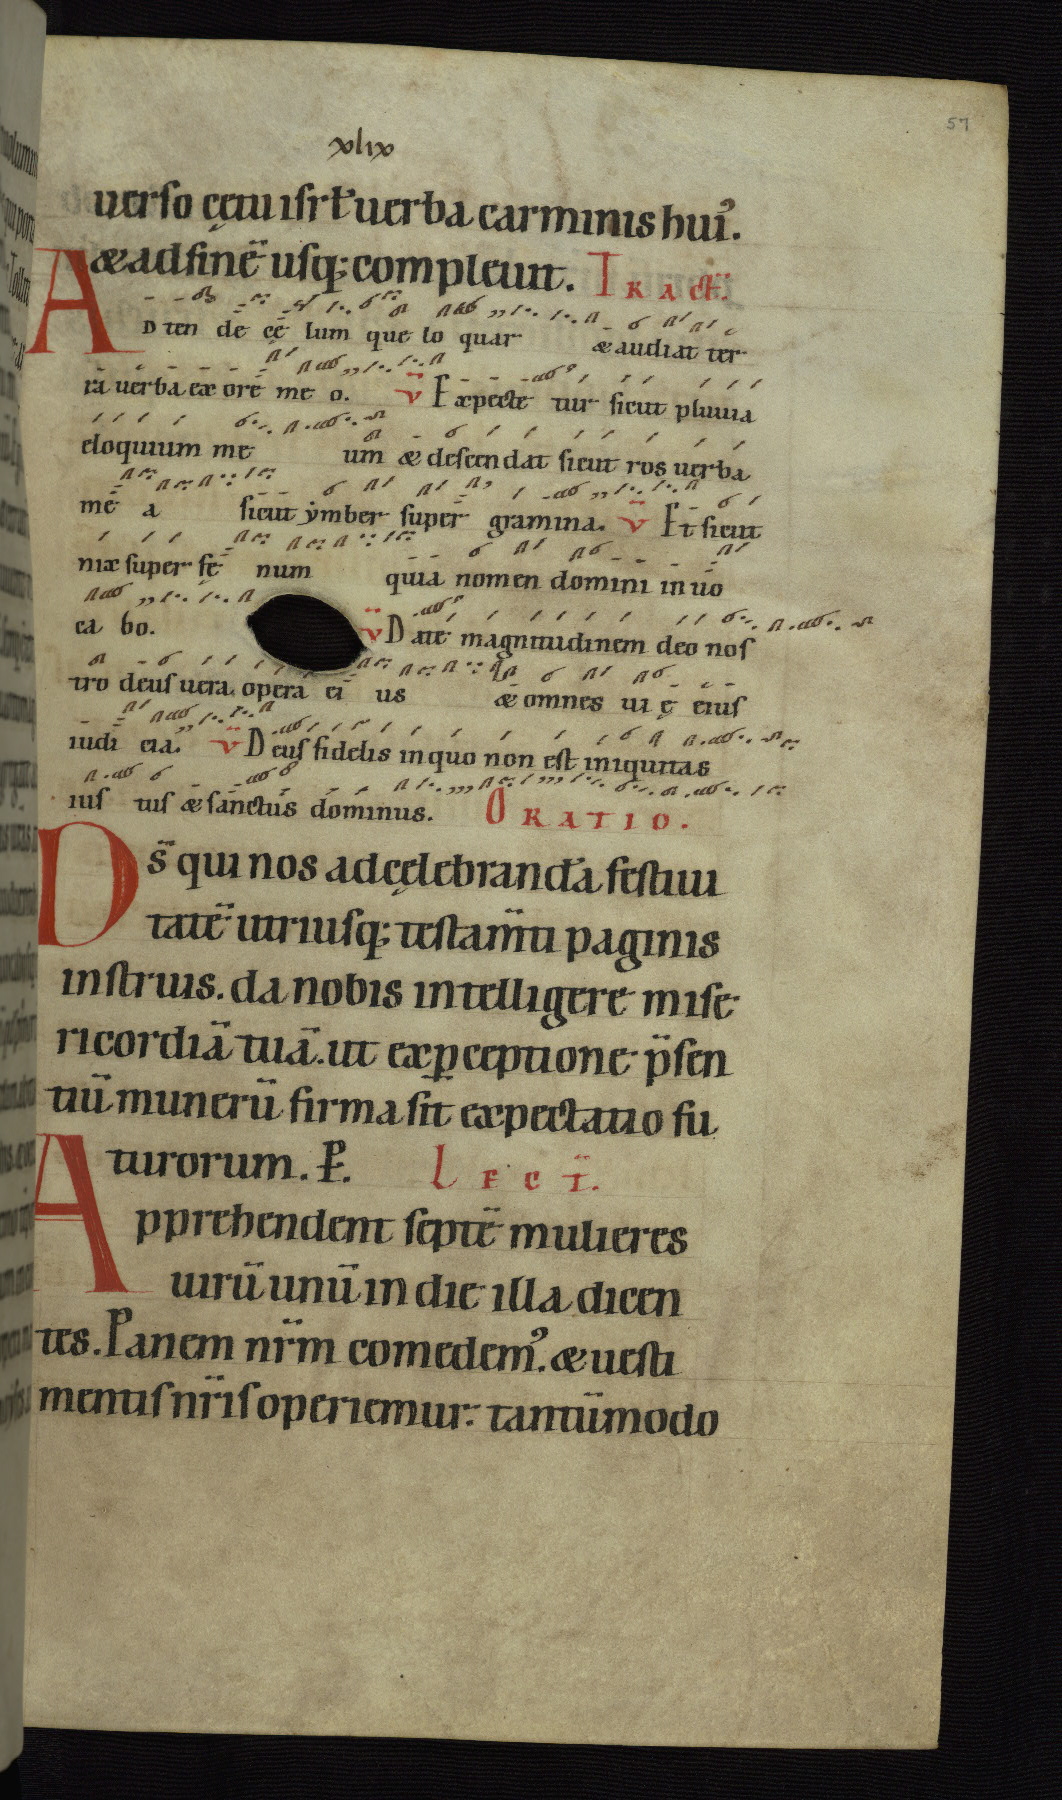 57
xlix
uerso cętu isrl̃ uerba carminis hui᾽.
& ad finē usq; compleuit. Tract̃.
Adtende cęlum que lo quar & audiat ter
ra uerba ex ore me o. V̄ Expecte tur sicut pluuia
eloquium me um & descendat sicut ros uerba
me a sicut ẏmber super gramina. V̄ Et sicut
nix super fę num quia nomen domini inuo
ca bo. V̄ Date magnitudinem deo nos
tro deus uera opera ei us & omnes uię eius
iudi cia. V̄ Deus fidelis in quo non est iniquitas
ius tus & sanctus dominus. ORATIO.
Ds̄ qui nos ad cęlebranda festiui
tatē utriusq; testam̄ti paginis
instruis. da nobis intelligere mise
ricordiā tuā. ut ex p̱ceptione p̄sen
tiū munerū firma sit expectatio fu
turorum. P̱. Lect̄.
Apprehendent septē mulieres
uirū unū in die illa dicen
tes. Panem nr̄m comedem᾽. & uesti
mentis nr̄is operiemur: tantūmodo